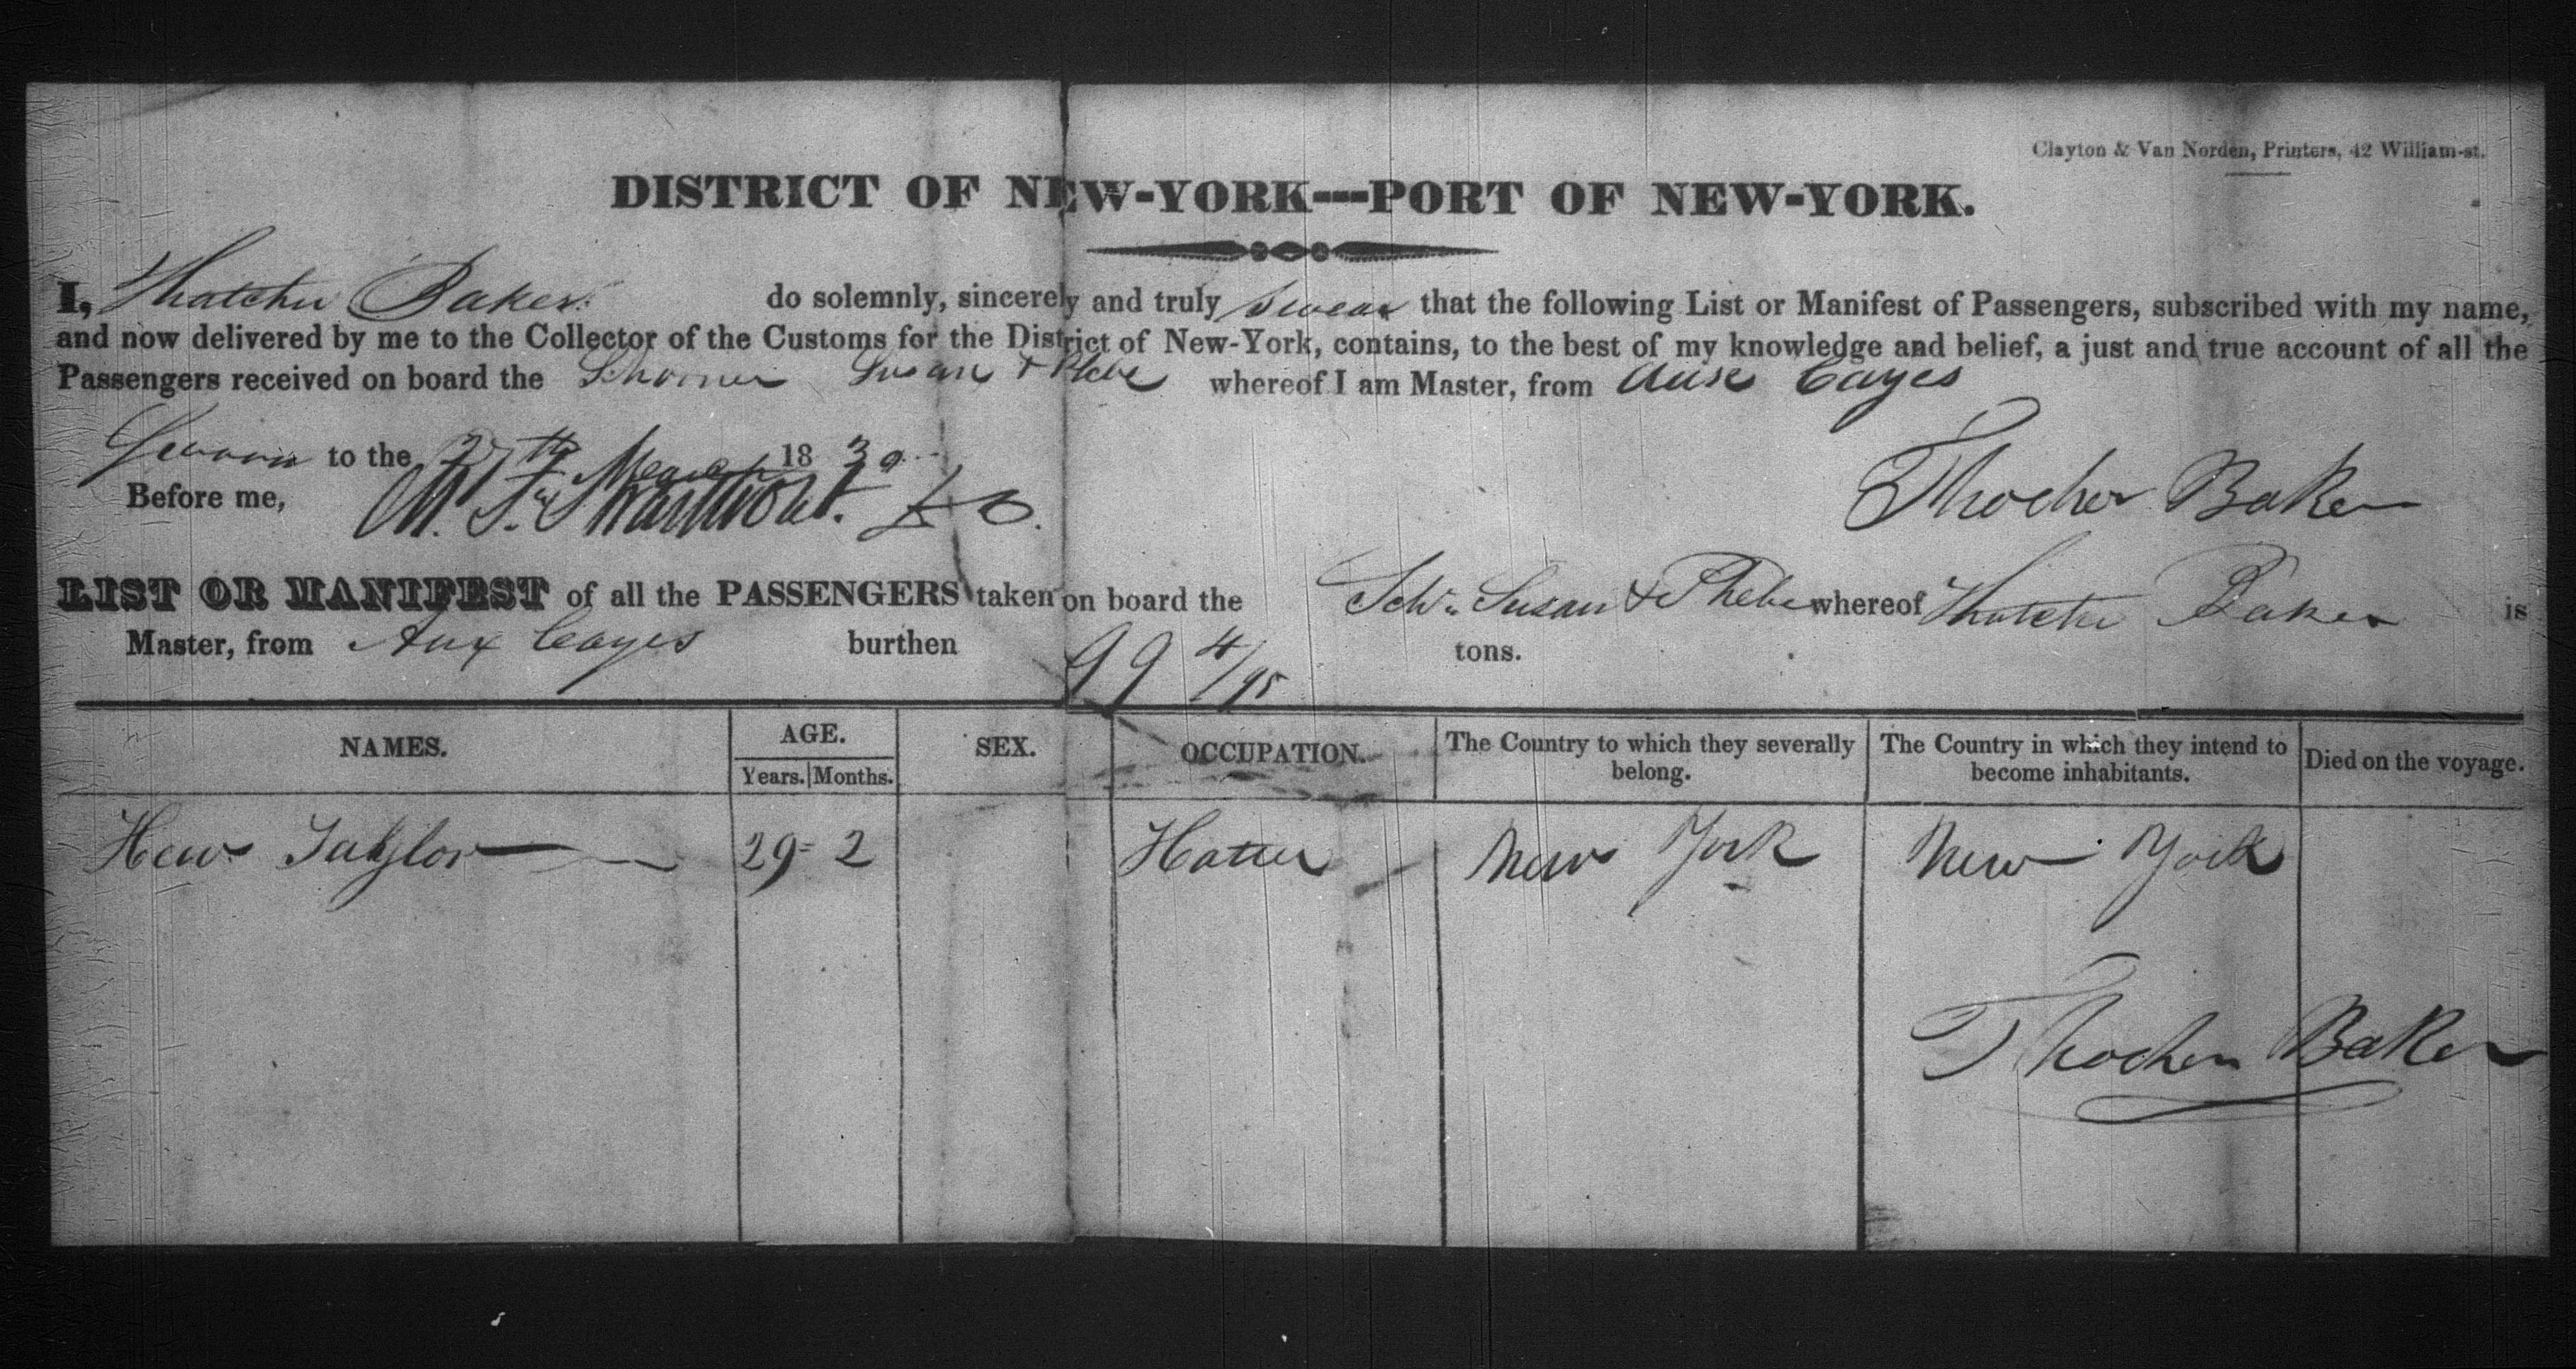 Clayton & Van Norden, Printers, 42 William-st.
DISTRICT OF NEW-YORK---PORT OF NEW-YORK.
I, Thatcher Baker do solemnly, sincerely and truly swear that the following List or Manifest of Passengers, subscribed with my name,
and now delivered by me to the Collector of the Customs for the District of New-York, contains, to the best of my knowledge and belief, a just and true account of all the
Passengers received on board the Schooner Susan & Phebe whereof I am Master, from Aux Cayes
Sworn to the 27th March 1830
Before me,
Thacher Baker
LIST OR MANIFEST of all the PASSENGERS taken on board the Schr. Susan & Phebe whereof Thatcher Baker is
Master, from Aux Cayes burthen 99 4/95 tons.
NAMES. AGE. SEX. OCCUPATION. The Country to which they severally belong. The Country in which they intend to become inhabitants. Died on the voyage.
Years. Months.
Hew Taylor 29 = 2 Hatter New York New York
Thacher Baker